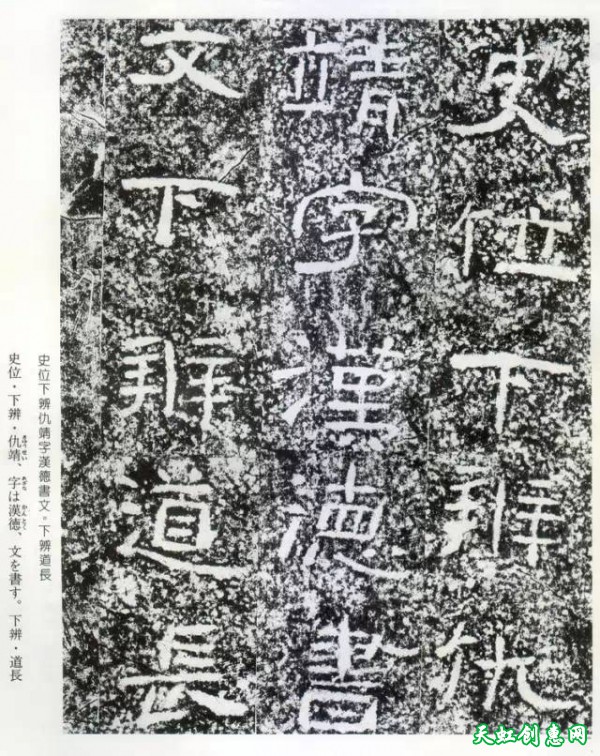 史位下辨仇
靖字漢德書
文下辨道長
史位下辨仇靖字漢德書文。下辨道長
史位・下辨・仇靖、字は漢德、文を書す。下辨・道長
天虹创意网